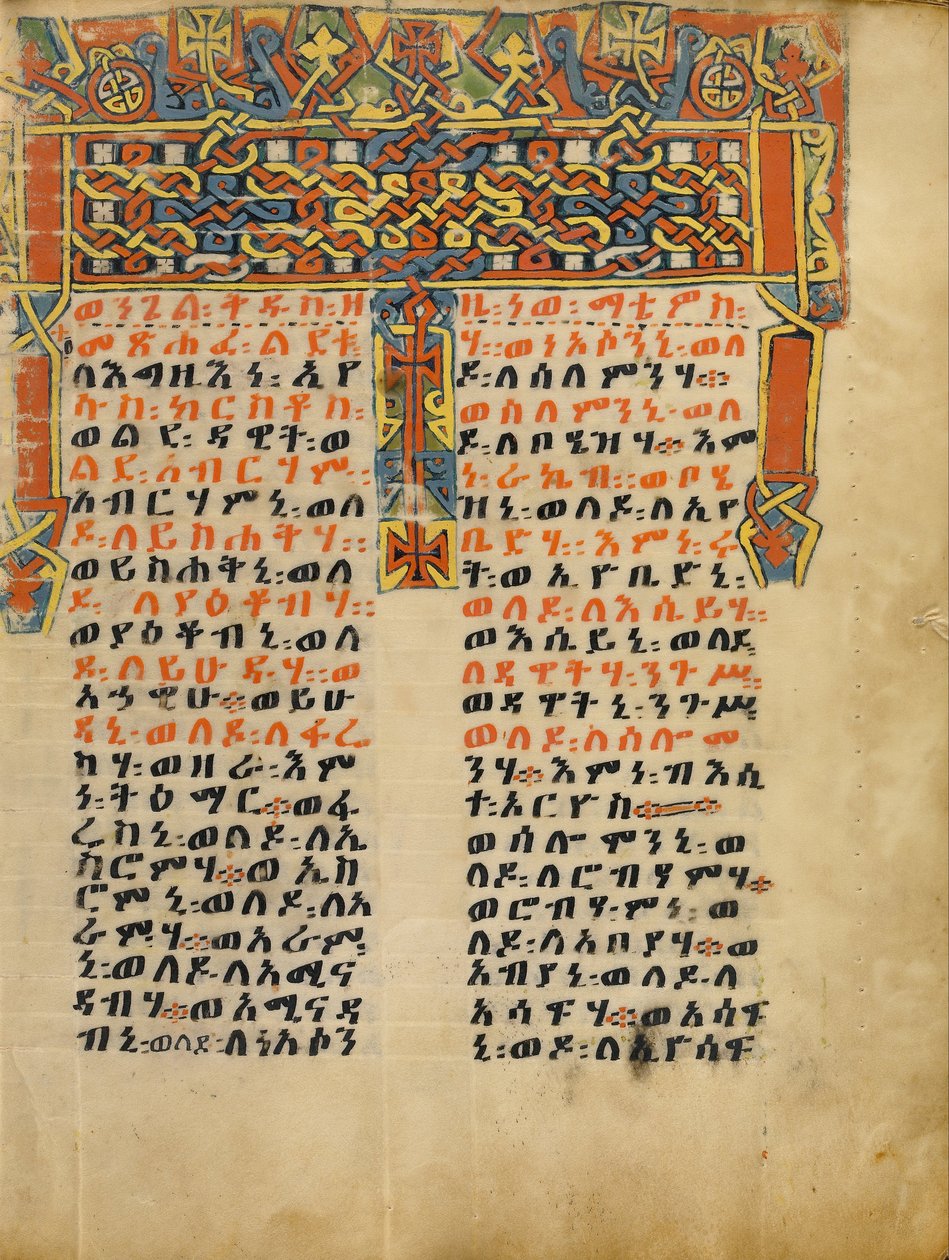 ወንጌል፡ቅዱስ፡ዘ
መጽሐፈ፡ልደቱ፡
ለእግዚእነ፡ኢየ
ሱስ፡ክርስቶስ፡
ወልደ፡ዳዊት፡ወ
ልደ፡አብርሃም፡
አብርሃምኒ፡ወለ
ዶ፡ለይስሐቅሃ፡፡
ወይስሐቅኒ፡ወለ
ዶ፡ለያዕቆብሃ፡፡
ወያዕቆብኒ፡ወለ
ዶ፡ለይሁዳሃ፡፡ወ
አኀዊሁ፡፡ወይሁ
ዳኒ፡ወለዶ፡ለፋሬ
ስሃ፡ወዘራ፡እም
ነ፡ትዕማር፡፡ወፋ
ሬስኒ፡ወለዶ፡ለኢ
ስሮምሃ፡፡ወኢስ
ሮምኒ፡ወለዶ፡ለአ
ራምሃ፡፡ወአራም
ኒ፡ወለዶ፡ለአሚና
ዳብሃ፡፡ወአሚናዳ
ብኒ፡ወለደ፡ለነአሶን
ዜ፡ነወ፡ማቴዎስ፡
ሃ፡፡ወነአሶንኒ፡ወለ
ዶ፡ለሰለምንሃ፡፡
ወሰለምንኒ፡ወለ
ዶ፡ለቦዔዝሃ፡፡እም
ነ፡ራኬብ፡፡ወቦዔ
ዝኒ፡ወለዶ፡ለኢዮ
ቤድሃ፡፡እምነ፡ሩ
ት፡ወኢዮቤድኒ፡
ወለዶ፡ለእሴይሃ፡፡
ወእሴይኒ፡ወለደ፡
ለዳዋትሃ፡ንጉሥ፡፡
ወዳዋትኒ፡ንጉሥ፡
ወለዶ፡ለሰሎሞ
ንሃ፡፡እምነ፡ብእሲ
ተ፡ኦርዮስ፡፡
ወሰሎሞንኒ፡ወ
ለዶ፡ለሮብዓምሃ፡፡
ወሮብዓምነ፡ወ
ለዶ፡ለአቢያሃ፡፡ወ
አብያኒ፡ወለዶ፡ለ
አሳፍሃ፡፡ወአሳፍ
ኒ፡ወዶ፡ለኢዮሳፍ